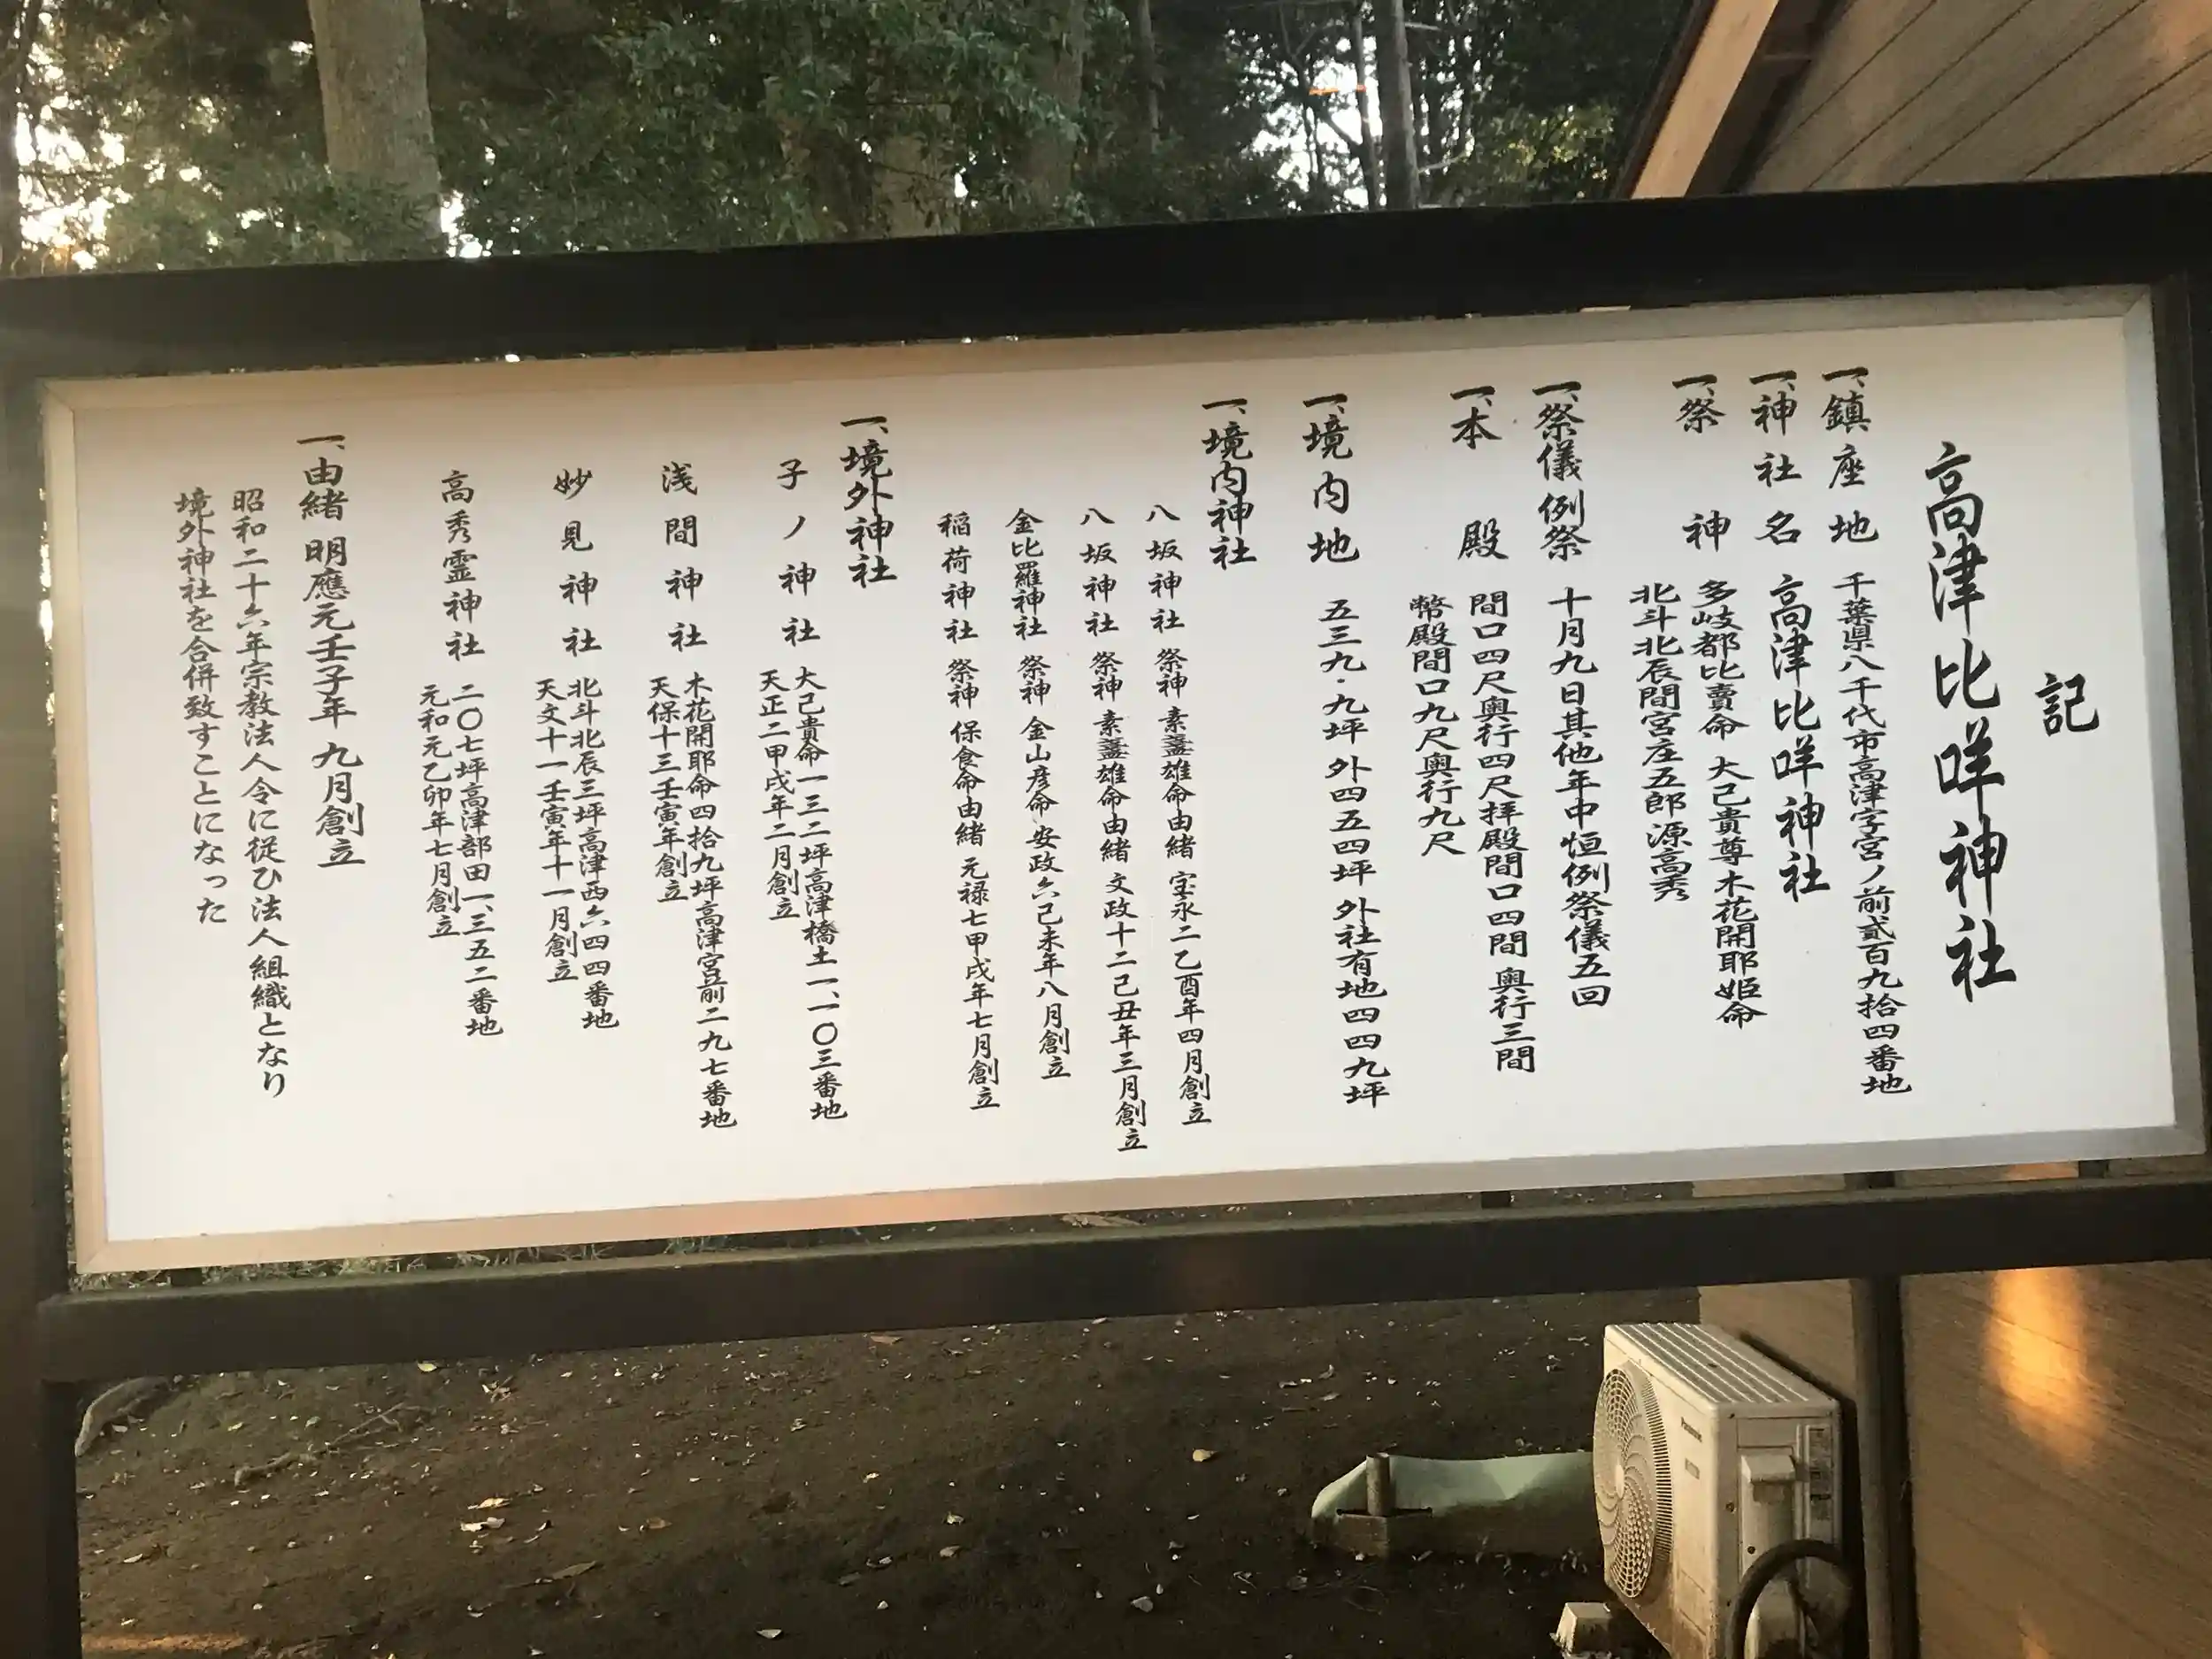 記
高津比咩神社
一、鎮座地 千葉県八千代市高津字宮ノ前貳百九拾四番地
一、神社名 高津比咩神社
一、祭神 多岐都比賣命 大己貴尊 木花開耶姫命
北斗北辰間宮庄五郎源高秀
一、祭儀例祭 十月九日其他年中恒例祭儀五回
一、本殿 間口四尺奥行四尺拝殿間口四間奥行三間
幣殿間口九尺奥行九尺
一、境内地 五三九・九坪 外四五四坪 外社有地四四九坪
一、境内神社
八坂神社 祭神 素盞雄命由緒 宝永二乙酉年四月創立
八坂神社 祭神 素盞雄命由緒 文政十二己丑年三月創立
金比羅神社 祭神 金山彦命 安政六己未年八月創立
稲荷神社 祭神 保食命由緒 元禄七甲戌年七月創立
一、境外神社
子ノ神社 大己貴命一三二坪高津橋土一、一〇三番地
天正二甲戌年二月創立
浅間神社 木花開耶命四拾九坪高津宮前二九七番地
天保十三壬寅年創立
妙見神社 北斗北辰三坪高津西六四四番地
天文十一壬寅年十一月創立
高秀霊神社 二〇七坪高津部田一、三五二番地
元和元乙卯年七月創立
一、由緒 明應元壬子年 九月創立
昭和二十六年宗教法人令に従ひ法人組織となり
境外神社を合併致すことになった
Panasonic